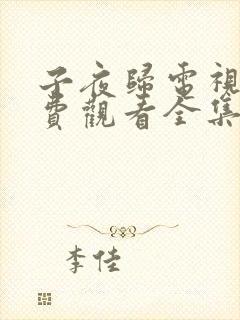 子夜歸電視
費觀看全集
李佳